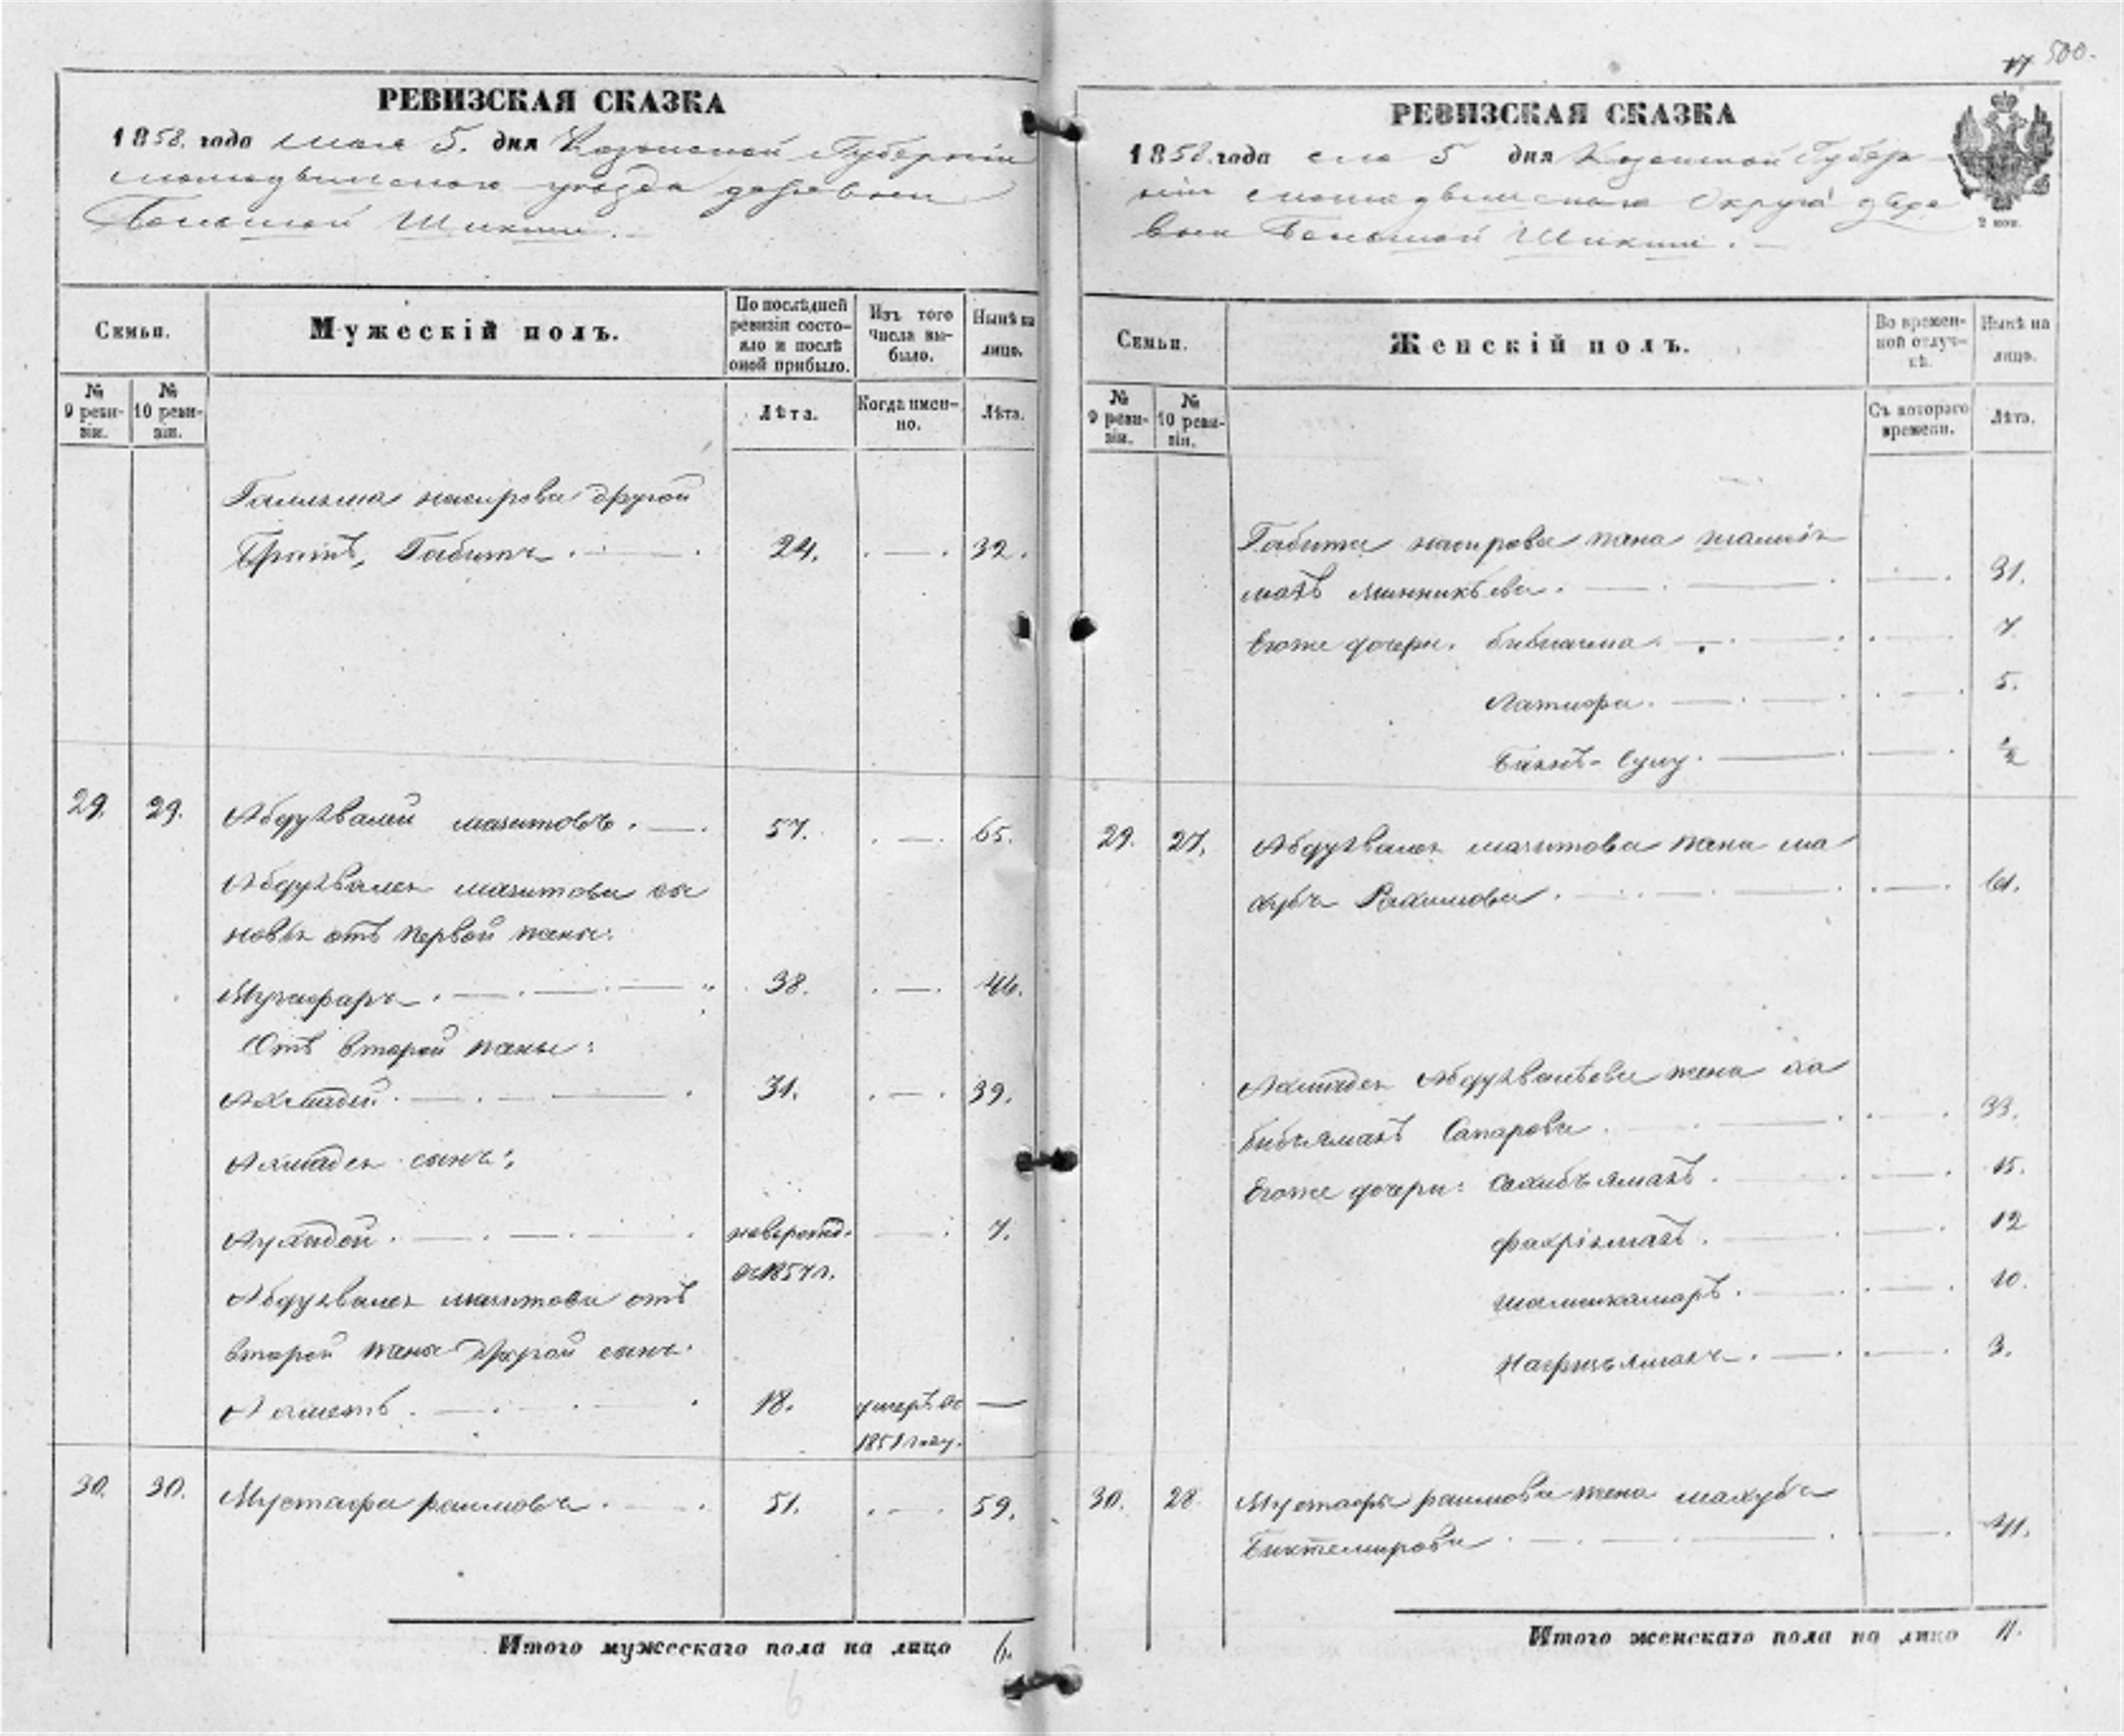 17 500.
РЕВИЗСКАЯ СКАЗКА
1858. года мая 5. дня Казанской Губерніи
уѣзда деревни
Большой Шикши.
Семьи.
Мужескій полъ.
По послѣдней ревизіи состояло и послѣ оной прибыло.
Изъ того числа выбыло.
Нынѣ на лицо.
№ 9 ревизіи.
№ 10 ревизіи.
Лѣта.
Когда именно.
Лѣта.
другой
братъ, Габитъ . 24. 32.
29. 29. Абдулвалей магитовъ. 57. 65.
Абдулвалея магитова сы
новья отъ первой жены:
Музафаръ. 38. 46.
Отъ второй жены:
Ахмадей. 31. 39.
Ахмадея сынъ:
7.
Абдулвалея магитова отъ
второй жены другой сынъ.
Ахметъ. 18. умеръ въ —
1851 году.
30. 30. Мустафа раимовъ. 51. 59.
Итого мужескаго пола на лицо 6.
РЕВИЗСКАЯ СКАЗКА
1858. года мая 5 дня Казанской Губер
ніи Округа дере
вни Большой Шикши.
2 коп.
Семьи.
Женскій полъ.
Во временной отлучкѣ.
Нынѣ на лицо.
№ 9 ревизіи.
№ 10 ревизіи.
Съ котораго времени.
Лѣта.
Габита жена
31.
Егоже дочери. 7
Латифа. 5.
29. 27. Абдулвалея магитова жена ма
хуба Рахимова. 61.
Ахмадея Абдулвалѣева жена ха
бибъямалъ Сапарова. 33.
Егоже дочери: сахибъямалъ. 15.
фахріямалъ. 12
шамсикамаръ. 10.
3.
30. 28 Мустафы раимова жена махуба
Биктемирова 41.
Итого женскаго пола на лицо 11.